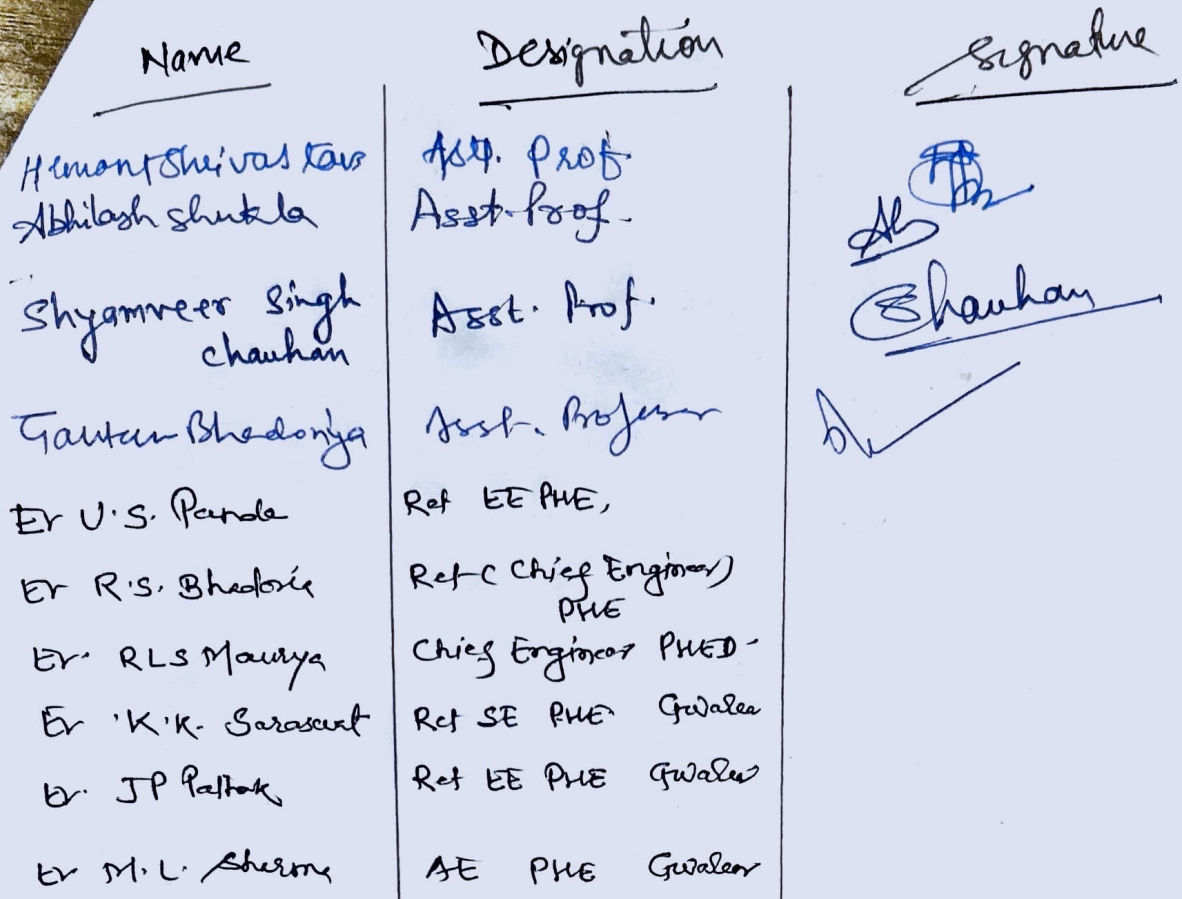 Name Designation Signature
Hemant Shrivastav Asst. Prof.
Abhilash Shukla Asst. Prof.
Shyamveer Singh Asst. Prof. Chauhan
Chauhan
Gautam Bhadoriya Asst. Professor
Er U.S. Pande Ret EE PHE,
Er R.S. Bhadoria Ret-C Chief Engineer)
PHE
Er. RLS Maurya Chief Engineer PHED-
Er K.K. Saraswat Ret SE PHE Gwalior
Er. JP Pathak Ret EE PHE Gwalior
Er M.L. Sharma AE PHE Gwalior